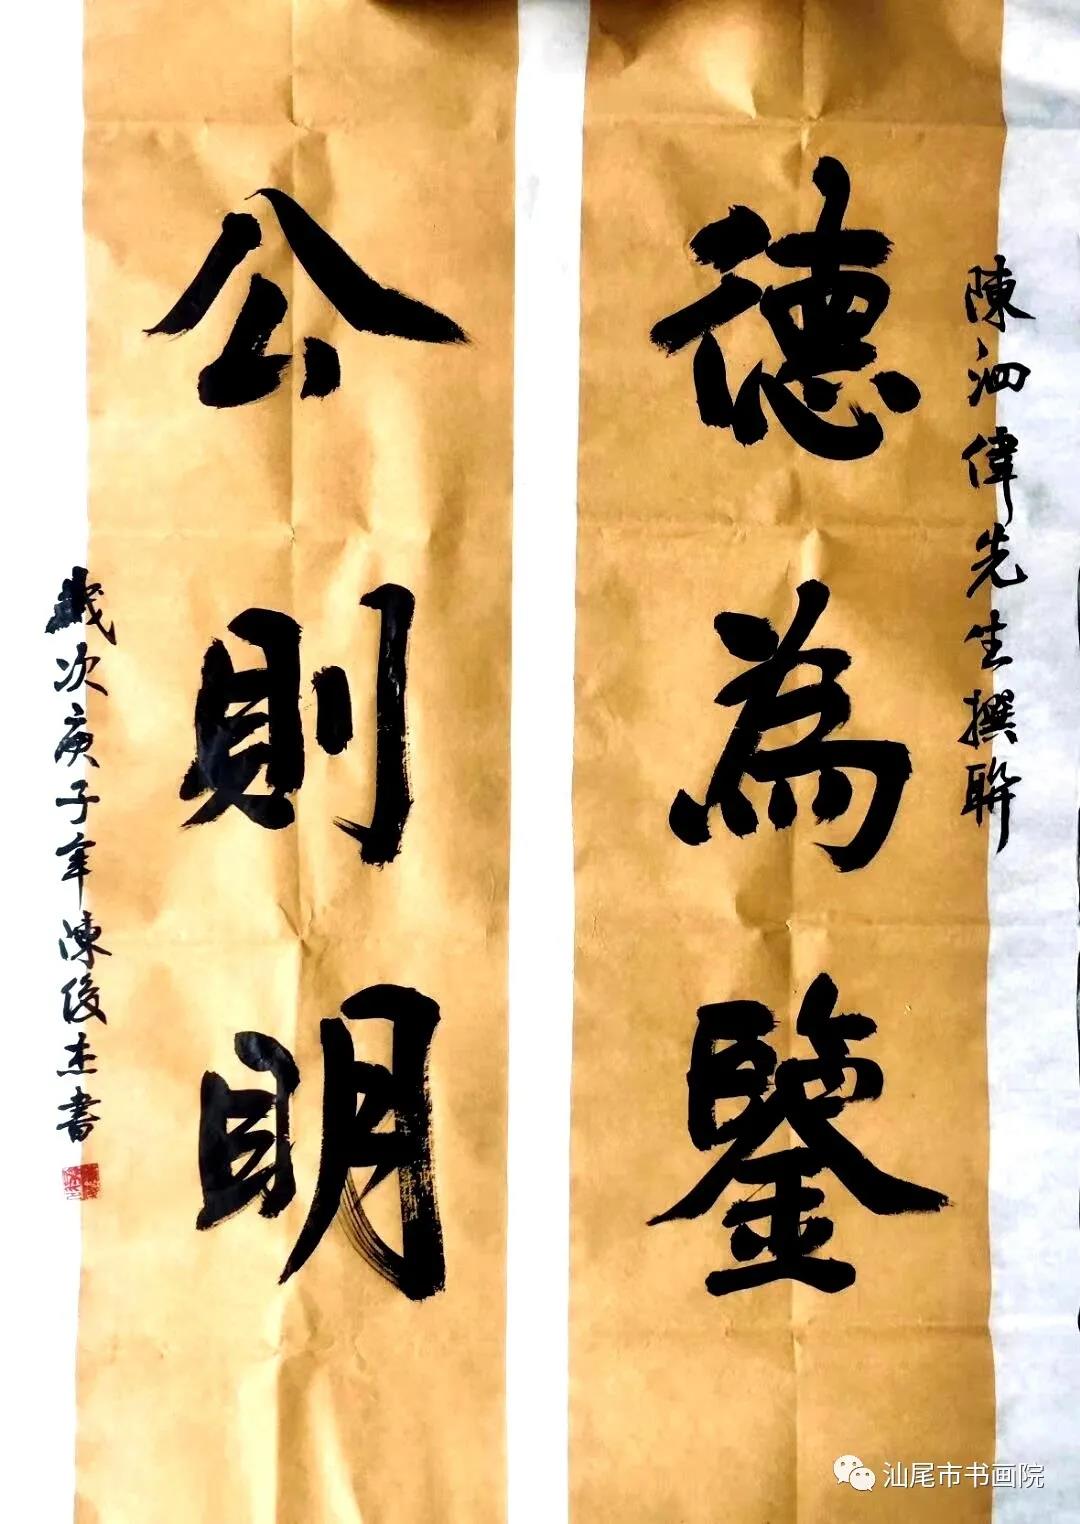 陳泗偉先生撰聨
德為鑒
公則明
歲次庚子年陳俊杰書
汕尾市书画院